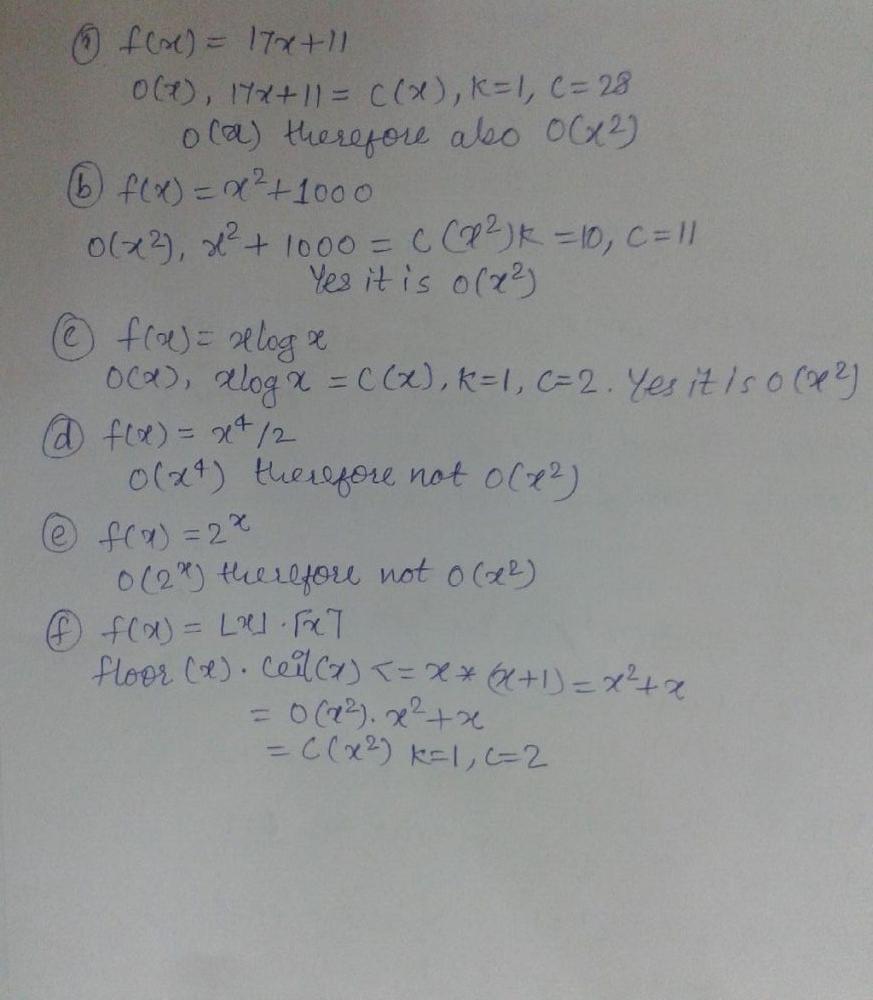 (a) f(x) = 17x+11
O(x), 17x+11 = C(x), k=1, C=28
O(x) therefore also O(x²)
(b) f(x) = x²+1000
O(x²), x²+1000 = C(x²) k=10, C=11
Yes it is O(x²)
(c) f(x) = xlogx
O(x), xlogx = C(x), k=1, C=2. Yes it is O(x²)
(d) f(x) = x⁴/2
O(x⁴) therefore not O(x²)
(e) f(x) = 2ˣ
O(2ˣ) therefore not O(x²)
(f) f(x) = ⌊x⌋·⌈x⌉
floor(x)·Ceil(x) <= x*(x+1) = x²+x
= O(x²). x²+x
= C(x²) k=1, C=2